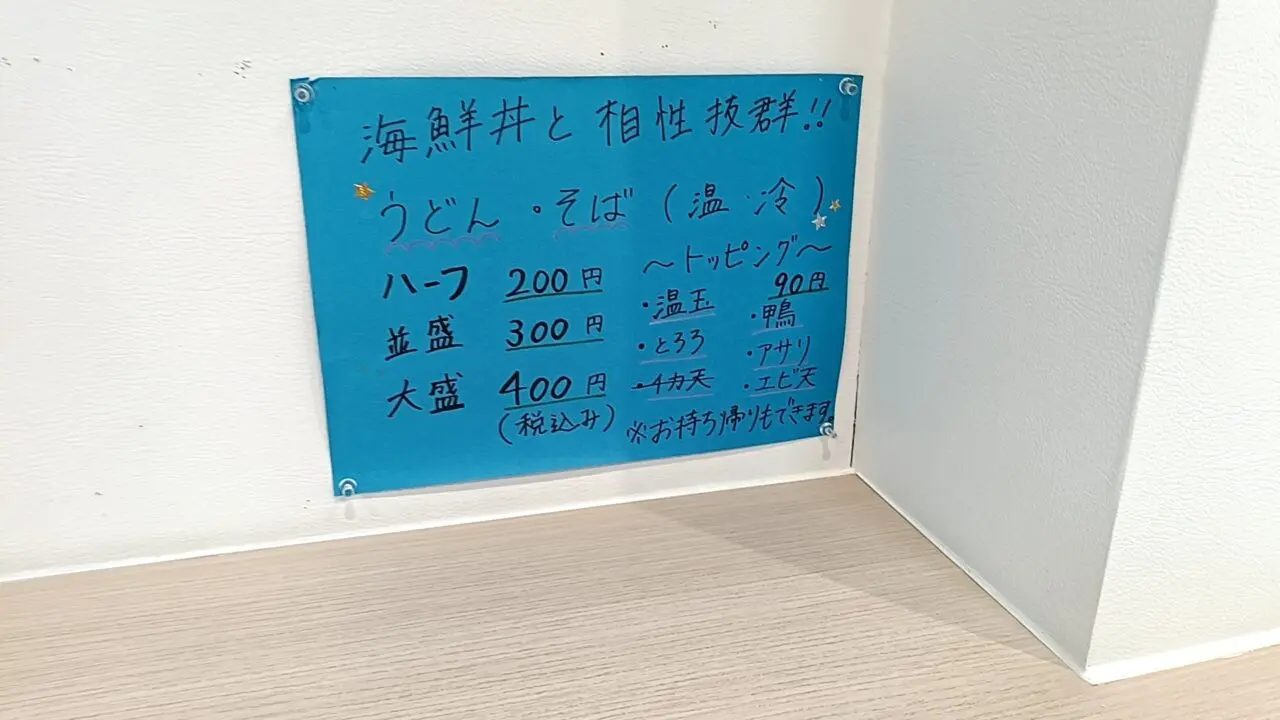 海鮮丼と相性抜群!!
うどん・そば(温・冷)
ハーフ 200円
並盛 300円
大盛 400円
(税込み)
〜トッピング〜
90円
・温玉 ・鴨
・とろろ ・アサリ
・イカ天 ・エビ天
※お持ち帰りもできます。